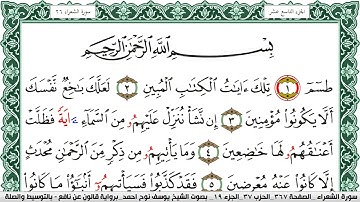 سورة الشعراء ٢٦
الجزء التاسع عشر
بِسْمِ اللَّهِ الرَّحْمَٰنِ الرَّحِيمِ
طسٓمٓ ١ تِلْكَ ءَايَٰتُ الْكِتَٰبِ الْمُبِينِ ٢ لَعَلَّكَ بَٰخِعٌ نَّفْسَكَ
أَلَّا يَكُونُوا مُؤْمِنِينَ ٣ إِن نَّشَأْ نُنَزِّلْ عَلَيْهِمُ مِنَ السَّمَآءِ ايَةً فَظَلَّتْ
أَعْنَٰقُهُمُ لَهَا خَٰضِعِينَ ٤ وَمَا يَأْتِيهِمُ مِن ذِكْرٍ مِّنَ الرَّحْمَٰنِ مُحْدَثٍ
إِلَّا كَانُوا عَنْهُ مُعْرِضِينَ ٥ فَقَدْ كَذَّبُوا فَسَيَأْتِيهِمُ أَنۢبَٰٓؤُا مَا كَانُوا
سورة الشعراء الصفحة ٣٦٧ الحزب ٣٧ الجزء ١٩ بصوت الشيخ يوسف نوح احمد برواية قالون عن نافع - بالتوسيط والصلة